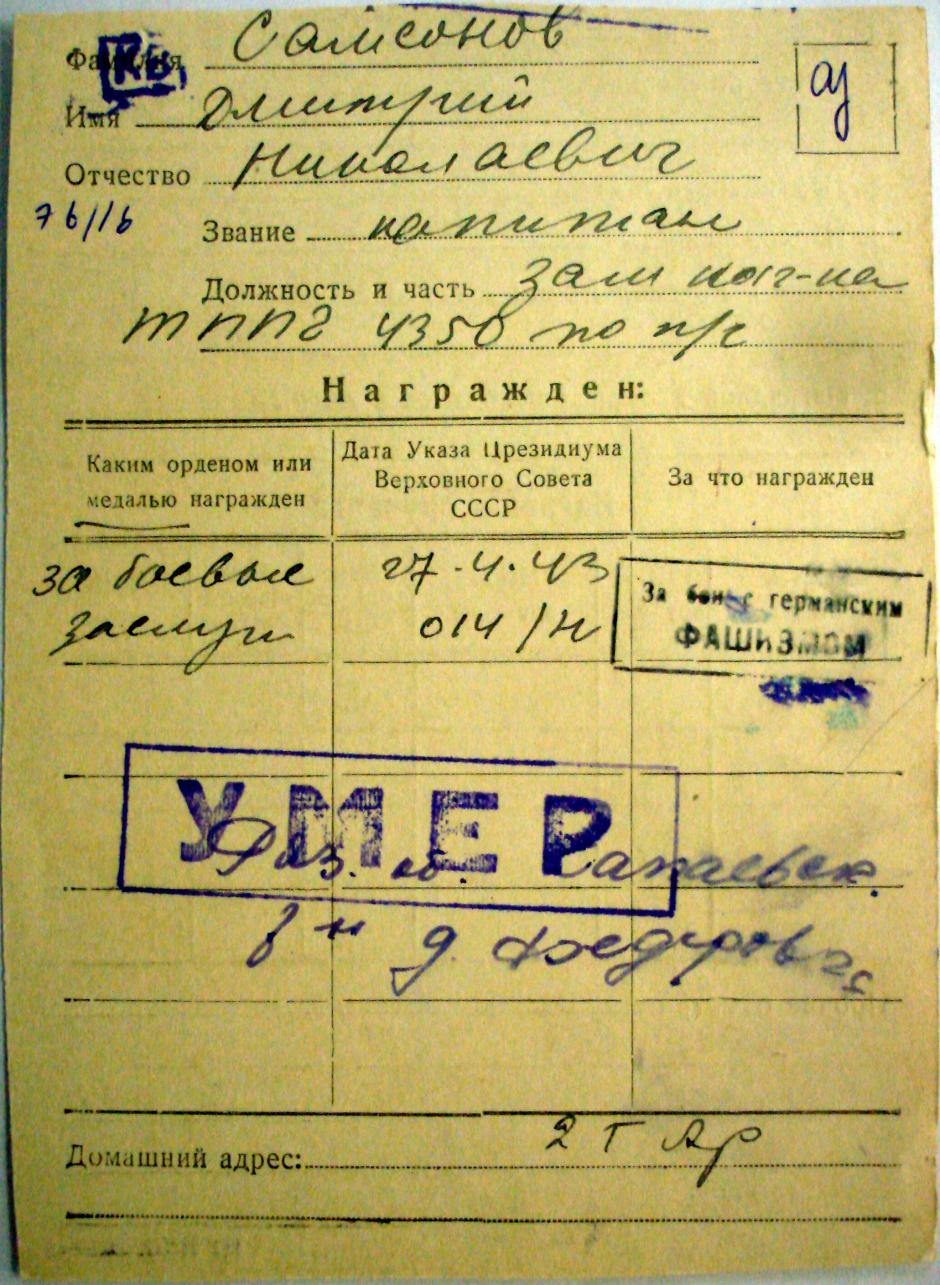 Фамилия Самсонов
КВ
Имя Дмитрий
Отчество Николаевич
76/16
Звание капитан
Должность и часть зам нач-ка
ТППГ 4350 по п/ч
Награжден:
Каким орденом или медалью награжден
Дата Указа Президиума Верховного Совета СССР
За что награжден
за боевые
заслуги
27.4.43
014/н
За бои с германским
ФАШИЗМОМ
УМЕР
Ряз. об.
р-н д. Федоров
Домашний адрес:
2 Г Ар